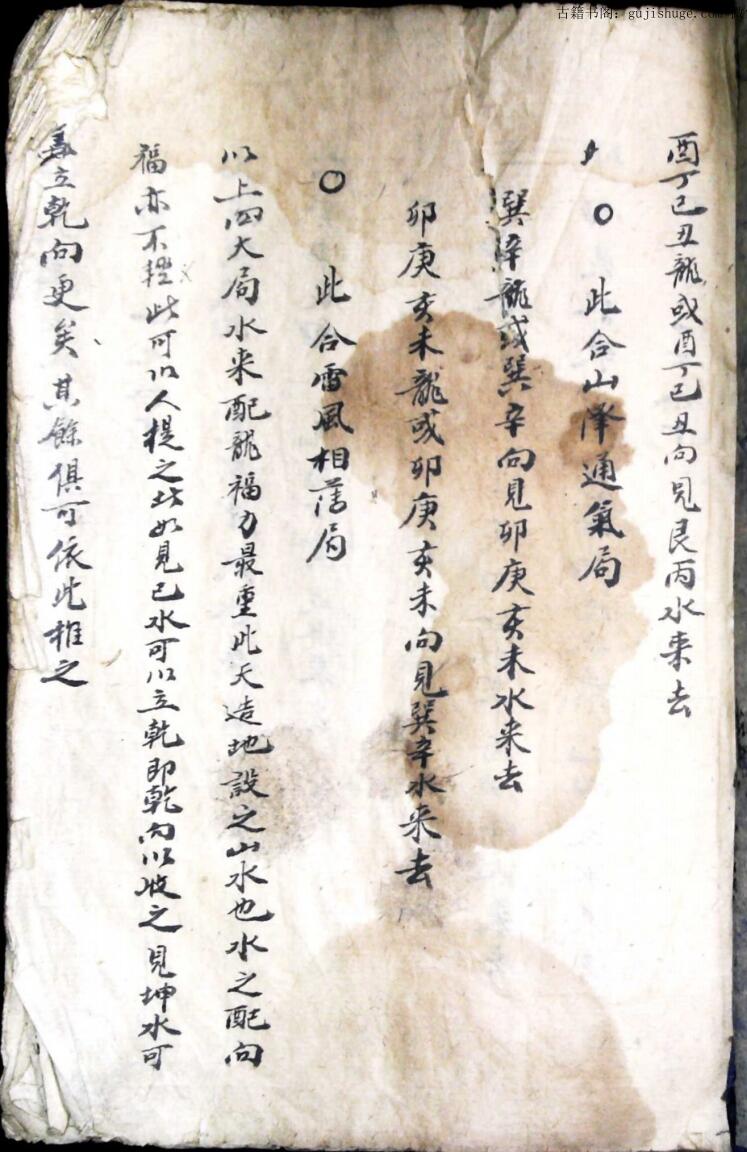 古籍书阁：gujishuge.com
酉丁己丑龍或酉丁己丑向見艮丙水来去
○ 此合山澤通氣局
巽辛龍或巽辛向見卯庚亥未水来去
卯庚亥未龍或卯庚亥未向見巽辛水来去
○ 此合雷風相薄局
以上四大局水来配龍福力最重此天造地設之山水也水之配向
福亦不輕此可以人提之此如見己水可以立乾即乾向以收之見坤水可
立乾向更矣其餘俱可依此推之